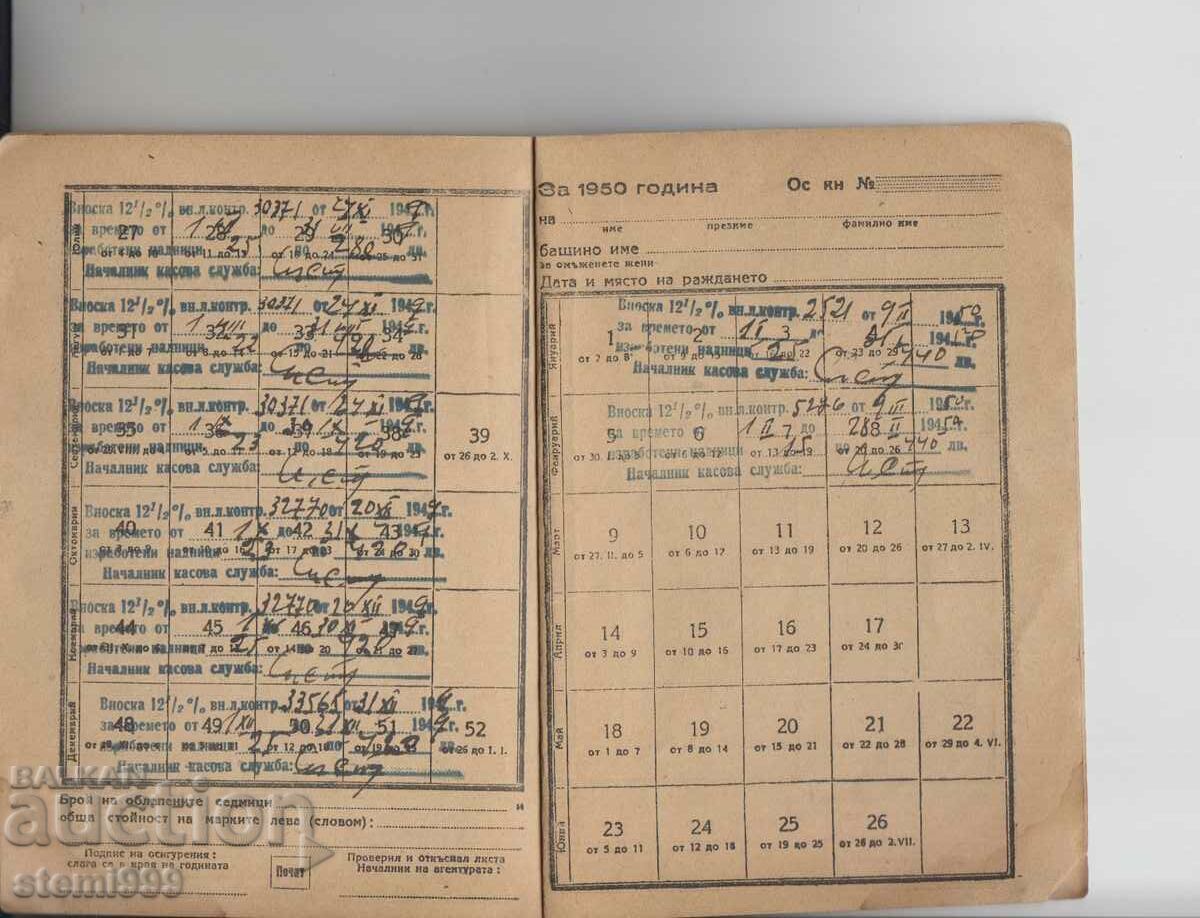 Юлий
Вноска 12½% вн.л.контр. 30371 от 24 XI 1949г.
за времето от 1 до 31 VII 194 г.
27 28 29 30
изработени надници 25 по 280 лв.
от 4 до 10 от 11 до 17 от 18 до 24 от 25 до 31
Началник касова служба:
Август
Вноска 12½% вн.л.контр. 30371 от 24 XI 1949г.
за времето от 1 VIII до 31 VIII 194 г.
31 32 33 34
изработени надници 22 по
Началник касова служба:
Септември
Вноска 12½% вн.л.контр. 30371 от 24 XI 194 г.
за времето от 1 до 30 IX 194 г.
35 36 37 38 39
изработени надници 23 по 420
от 5 до 11 от 12 до 18 от 19 до 25 от 26 до 2. X.
Началник касова служба:
Октомврий
Вноска 12½% вн.л.контр. 32770 от 20 XII 1949г.
за времето от 1 X до 31 X 1949г.
40 41 42 43
изработени надници 23 по 420
от 3 до 9 от 10 до 16 от 17 до 23 от 24 до 30
Началник касова служба:
Ноемврий
Вноска 12½% вн.л.контр. 32770 от 20 XII 1949г.
за времето от 1 до 30 XI 1949г.
44 45 46 47
изработени надници 25 по
от 14 до 20 от 21 до 27
Началник касова служба:
Декемврий
Вноска 12½% вн.л.контр. 33565 от 31 XII 194 г.
за времето от 1 XII до 31 XII 194 г.
48 49 50 51 52
изработени надници 25 по лв.
от 12 до 18 от 19 до 25 от 26 до 1. I.
Началник касова служба:
Брой на облепените седмици и
обща стойност на марките лева (словом):
Подпис на осигурения:
слага се в края на годината
Печат
Проверил и откъснал листа
Началник на агентурата:
За 1950 година Ос кн №
на
име презиме фамилно име
бащино име
за омъжените жени
Дата и място на раждането
Януарий
Вноска 12½% вн.л.контр. 2521 от 9 II 1950
за времето от 1 I до 31 I 194
1 2 3
изработени надници 25 440 лв.
от 2 до 8 от 9 до от 23 до 29
Началник касова служба:
Февруарий
Вноска 12½% вн.л.контр. 5276 от 9 III 1950
за времето от 1 II до 28 II 1950
5 6 7 8
изработени надници 15 по 440 лв.
от 6 до 12 от 13 до 19 от 20 до 26
Началник касова служба:
Март
9 10 11 12 13
от 27. II. до 5 от 6 до 12 от 13 до 19 от 20 до 26 от 27 до 2. IV.
Април
14 15 16 17
от 3 до 9 от 10 до 16 от 17 до 23 от 24 до 3г
Май
18 19 20 21 22
от 1 до 7 от 8 до 14 от 15 до 21 от 22 до 28 от 29 до 4. VI.
Юний
23 24 25 26
от 5 до 11 от 12 до 18 от 19 до 25 от 26 до 2. VII.
BALKAN
auction
stemi999